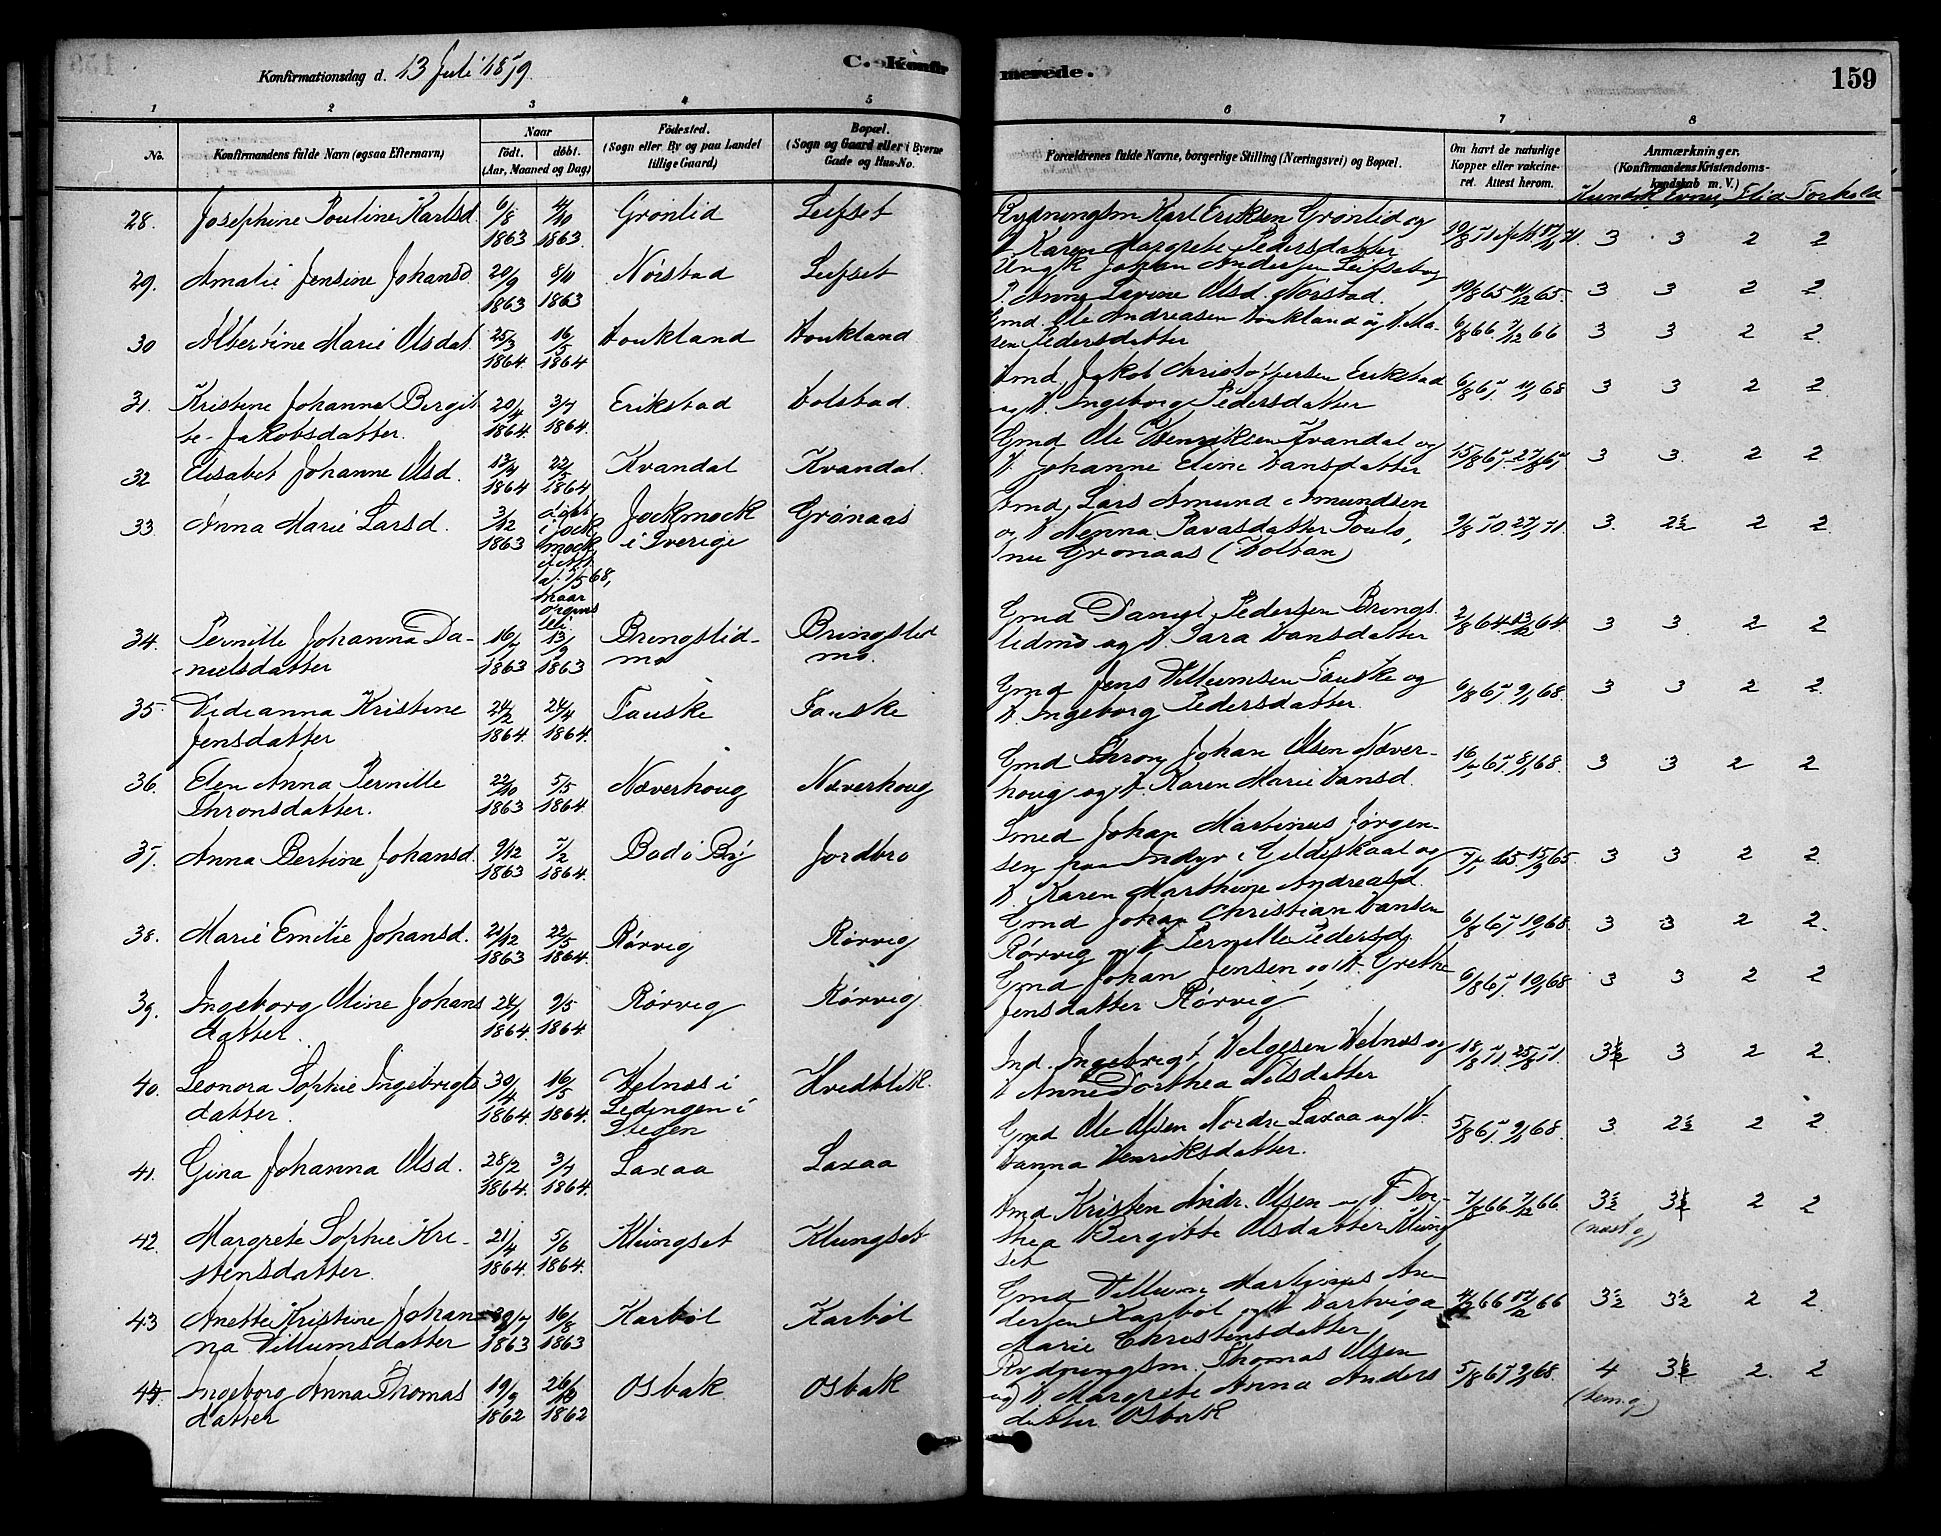 Konfirmationsdag d. 13 Juli 1879.
C. Konfirmerede.
159
1 2 3 4 5 6 7 8
No. Konfirmandens fulde Navn (ogsaa Efternavn) Naar født. døbt. (Aar, Maaned og Dag) Fødested. (Sogn eller By og paa Landet tillige Gaard) Bopæl. (Sogn og Gaard eller i Byerne Gade og Hus-No. Forældrenes fulde Navne, borgerlige Stilling (Næringsvei) og Bopæl. Om havt de naturlige Kopper eller vakcineret. Attest herom. Anmærkninger. (Konfirmandens Kristendomskundskab m. V.)
Kundsk. Evner, Flid Forhold
28. Josephine Pouline Karlsd. 6/8 1863 4/10 1863. Grønlid Leifset
Rydningsm Karl Eriksen Grønlid og
Karen Margrete Pedersdatter
3 3 2 2
29. Amalie Jensine Johansd. 20/9 1863 8/11 1863 Nørstad Leifset
Ungk Johan Andersen Leifset og
P. Anne Lavine Olsd. Nørstad.
19/8 65 3 3 2 2
30 Albertine Marie Olsdat. 25/3 1864. 16/5 1864 Houkland Houkland
Gmd. Ole Andreasen Houkland og H. Ma-
ren Pedersdatter
6/8 66. 7/12 66 3 3 2 2
31. Kristine Johanna Bergit- 20/4 1864. 3/7 1864. Erikstad Holstad.
te Jakobsdatter.
Hmd. Jakob Christoffersen Erikstad
og H. Ingeborg Pedersdatter
3 3 2 2
32 Elisabet Johanne Olsd. 13/4 1864 22/5 1864 Kvandal Kvandal.
Gmd Ole Henriksen Kvandal og
H. Johanne Eline Hansdatter
3 3. 2 2
33. Anna Marie Larsd. 3/12 1863 døbt i Jockmock Jockmock i Sverige Grønaas
Hmd. Lars Amund Amundsen
og H Nenna Pavasdatter Poulo,
nu Grønaas (Holtan)
3. 2½ 2 2
34. Pernille Johanna Da- 1863 13/9 1863 Bringslid- Bringslid
nielsdatter mo mo.
Gmd Daniel Pedersen Brings-
lidmo og H. Sara Hansdatter
2/8 64 13/12 64 3 3. 2 2
35. Didianna Kristine 24/2 1864. 24/4 1864. Fauske Fauske
Jensdatter
Gmd Jens Villumsen Fauske og
H. Ingeborg Pedersdatter.
3 3 2 2.
36. Elen Anna Pernille 22/10 1863 5/5 1864 Næverhoug Næverhoug
Thronsdatter.
Gmd Thron Johan Olsen Næver-
houg og H. Karen Marie Hansd.
3 3 2 2
37. Anna Bertine Johansd. 9/12 1863 7/2 1864. Bodø By Jordbro
Smed Johan Martinus Jørgen-
sen paa Indyr i Gildeskaal og
H. Karen Marthine Andreasd.
3 3 2 2.
38. Marie Emilie Johansd. 21/12 1863 22/5 1864. Rørvig Rørvig
Gmd Johan Christian Hansen
Rørvig og H Pernille Pedersd.
3 3 2 2.
39. Ingeborg Oline Johans 24/1 1864. 9/5 1864. Rørvig Rørvig.
datter.
Gmd Johan Jensen og H. Grethe
Jensdatter Rørvig
3 3 2 2
40. Leonora Sophie Ingebrigts 30/4 1864. 16/5 1864. Helnæs i Hvedblik.
datter. Ledingen i
Stegen
Ind. Ingebrigt Helgesen Helnæs og
H Anne Dorthea Nilsdatter
3½ 3 2 2.
41. Gina Johanna Olsd. 28/2 1864. 3/7 1864. Laxaa Laxaa
Gmd Ole Olsen Nordre Laxaa og H.
Hanna Henriksdatter.
3. 2½ 2 2.
42. Margrete Sophie Kri- 21/4 1864. 5/6 1864. Klungset Klungset
stensdatter.
Hmd. Kristen Andr. Olsen og H Dor-
thea Bergitte Olsdatter Klung
set
7/8 66 7/12 66. 3½ 3½ 2 2
43 Anette Kristine Johan- 1863 16/8 1863 Karbøl Karbøl
na Villumsdatter
Gmd Villum Martinus An-
dersen Karbøl og H Hartviga
Marie Christensdatter
3½ 3½ 2 2.
44. Ingeborg Anna Thomas 19/9 1862 1862 Osbak Osbak
datter
Rydningsm. Thomas Olsen
og H Margrete Anna Anders
datter Osbak
4 3½ 2. 2